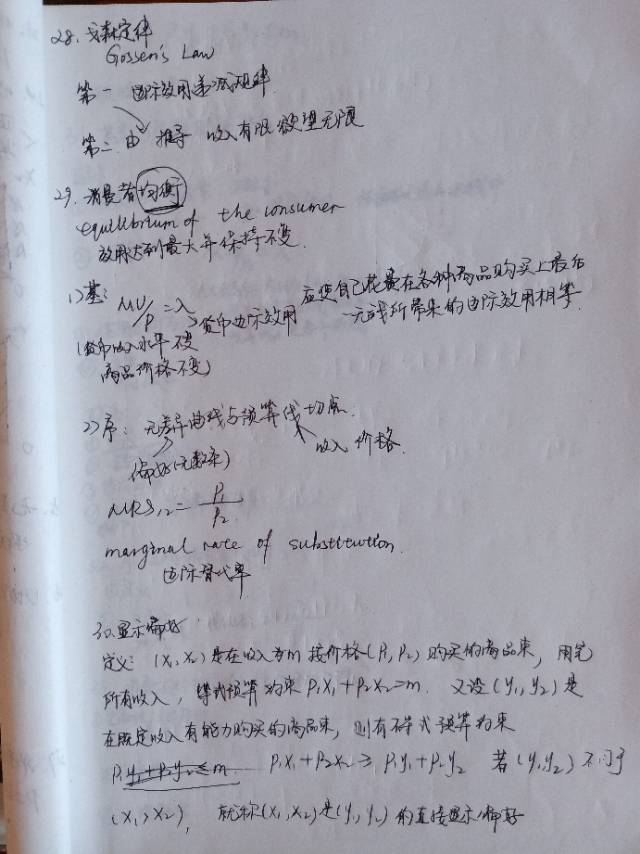 28. 戈森定律
Gossen's Law
第一 边际效用递减规律
第二 由 推导 收入有限 欲望无限
29. 消费者均衡
equilibrium of the consumer
效用达到最大并保持不变.
1) 基: MU/P = λ 应使自己花费在各种商品购买上最后
→货币边际效用 一元钱所带来的边际效用相等.
(货币收入水平不变
商品价格不变)
2) 序: 无差异曲线与预算线切点.
偏好(无数条) 收入 价格.
MRS₁₂ = P₁/P₂
marginal rate of substitution.
边际替代率
30. 显示偏好
定义: (X₁, X₂) 是在收入为m 按价格(P₁, P₂) 购买的商品束, 用完
所有收入, 等式预算约束 P₁X₁+P₂X₂=m. 又设 (y₁, y₂) 是
在既定收入有能力购买的商品束, 则有不等式预算约束
P₁y₁+P₂y₂≤m P₁X₁+P₂X₂ ≥ P₁y₁+P₂y₂ 若(y₁,y₂) 不同于
(X₁, X₂), 就称(X₁, X₂)是(y₁, y₂) 的直接显示偏好